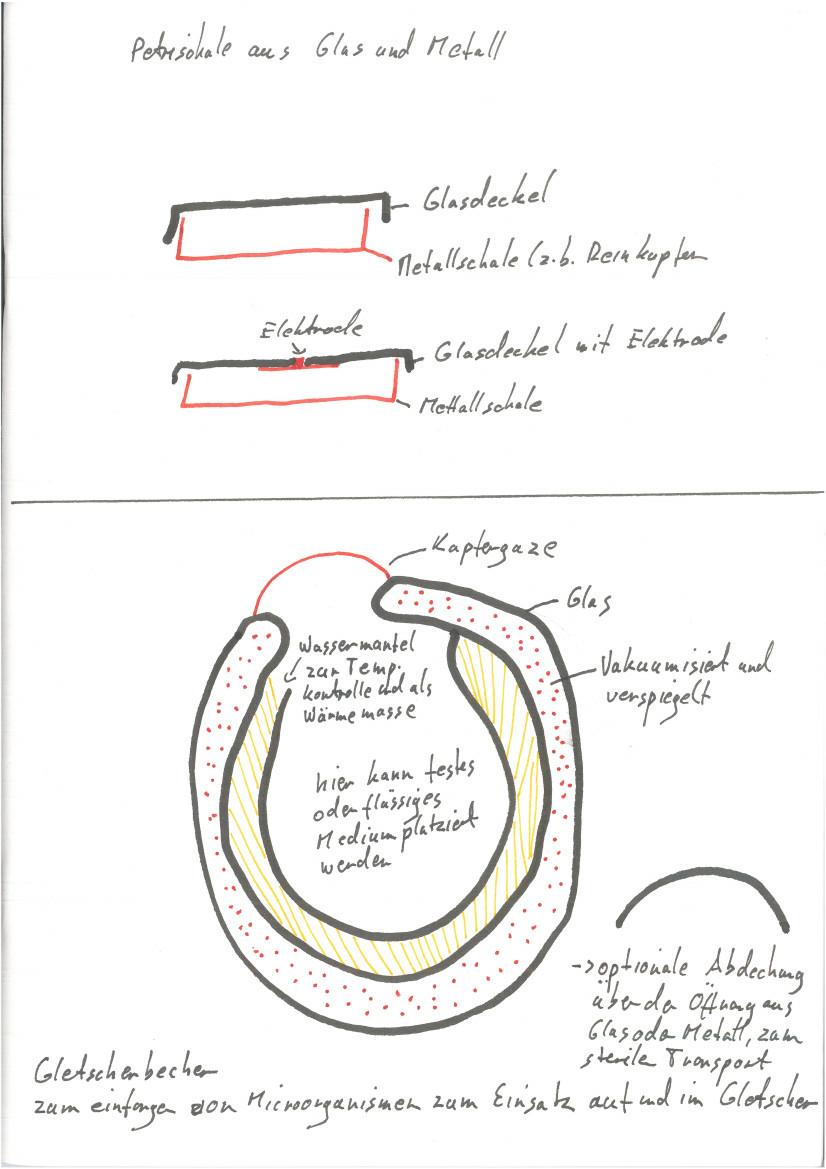 Petrischale aus Glas und Metall
Glasdeckel
Metallschale (z.b. Reinkupfer
Elektrode
Glasdeckel mit Elektrode
Mettallschale
Kupfergaze
Glas
Wassermantel
zur Temp.
kontrolle und als
Wärmemasse
Vakuumisiert und
verspiegelt
hier kann festes
oder flüssiges
Medium platziert
werden
->optionale Abdeckung
über der Öffnung aus
Glas oder Metall, zum
sterilen Transport
Gletscherbecher
zum einfangen von Microorganismen zum Einsatz auf und im Gletscher